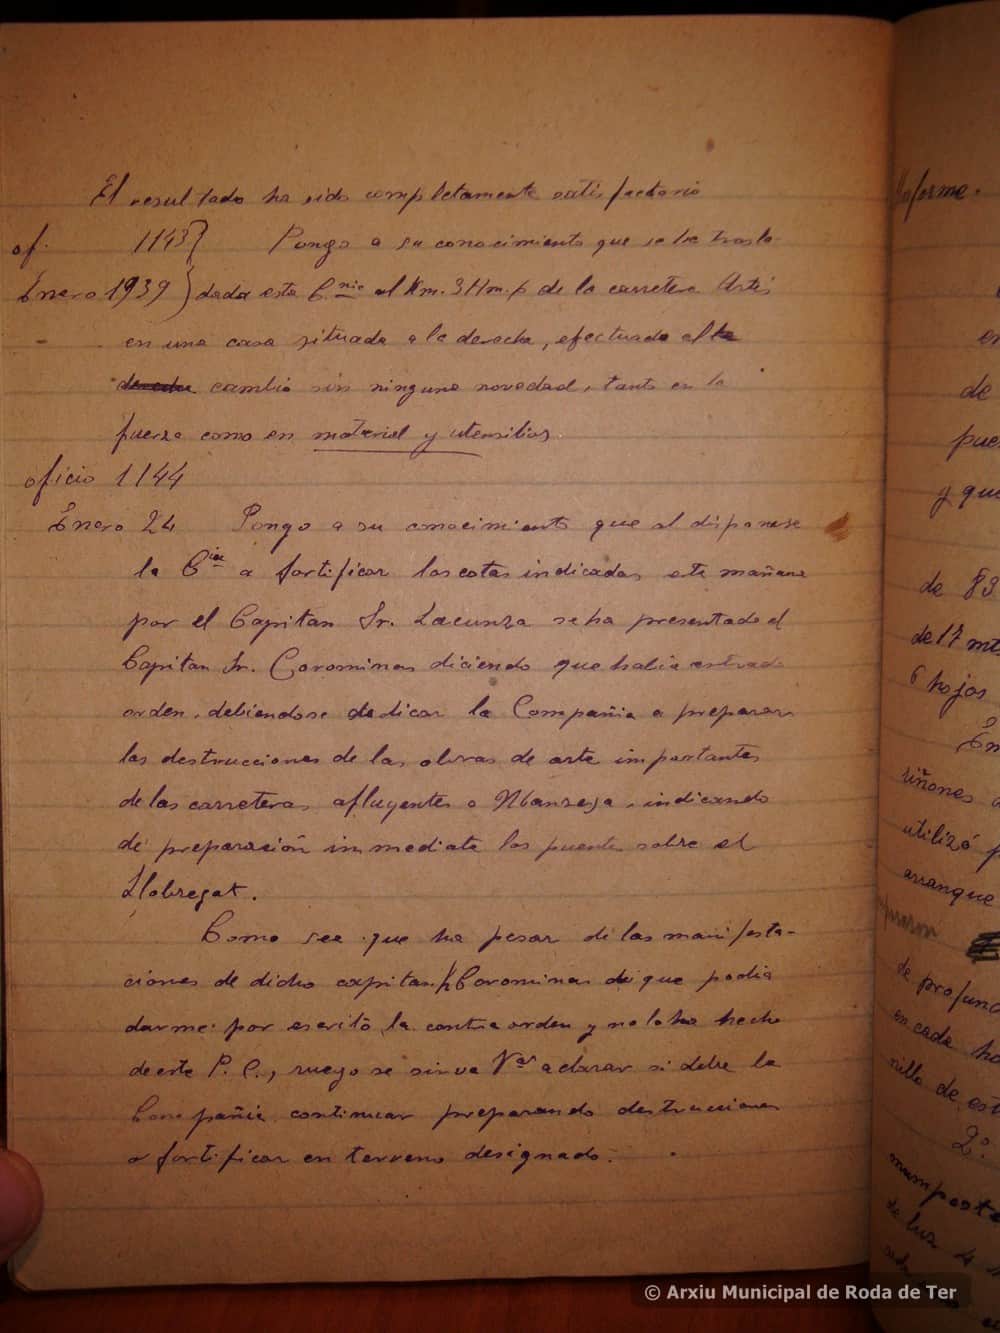 El resultado ha sido completamente satisfactorio
of. 1143} Pongo a su conocimiento que se ha trasla
Enero 1939) dada esta C.nia al Km. 3 Hm. de la carretera Artés
en una casa situada a la derecha, efectuado el
derecha cambio sin ninguna novedad, tanto en la
fuerza como en material y utensilios.
oficio 1144
Enero 24 Pongo a su conocimiento que al disponerse
la Cia a fortificar las cotas indicadas esta mañana
por el Capitan Sr. Lacunza se ha presentado el
Capitan Sr. Corominas diciendo que habia
orden, debiendose dedicar la Compañia a preparar
las destrucciones de las obras de arte importantes
de las carreteras afluyentes a Manresa, indicando
de preparación immediata los puentes sobre el
Llobregat.
Como sea que ha pesar de las manifesta-
ciones de dicho capitan Corominas de que podia
darme por escrito la contra orden y no lo ha hecho
de este P. C., ruego se sirva Vd aclarar si debe la
Compañia continuar preparando destrucciones
o fortificar en terreno designado.
Informe.
en
de
pue
y que
de 83
de 17 mt
6 hojas
En
riñones
utilizó p
arranque
de profund
en cada ho
nillo de est
2º.
mamposte
de luz 4
© Arxiu Municipal de Roda de Ter